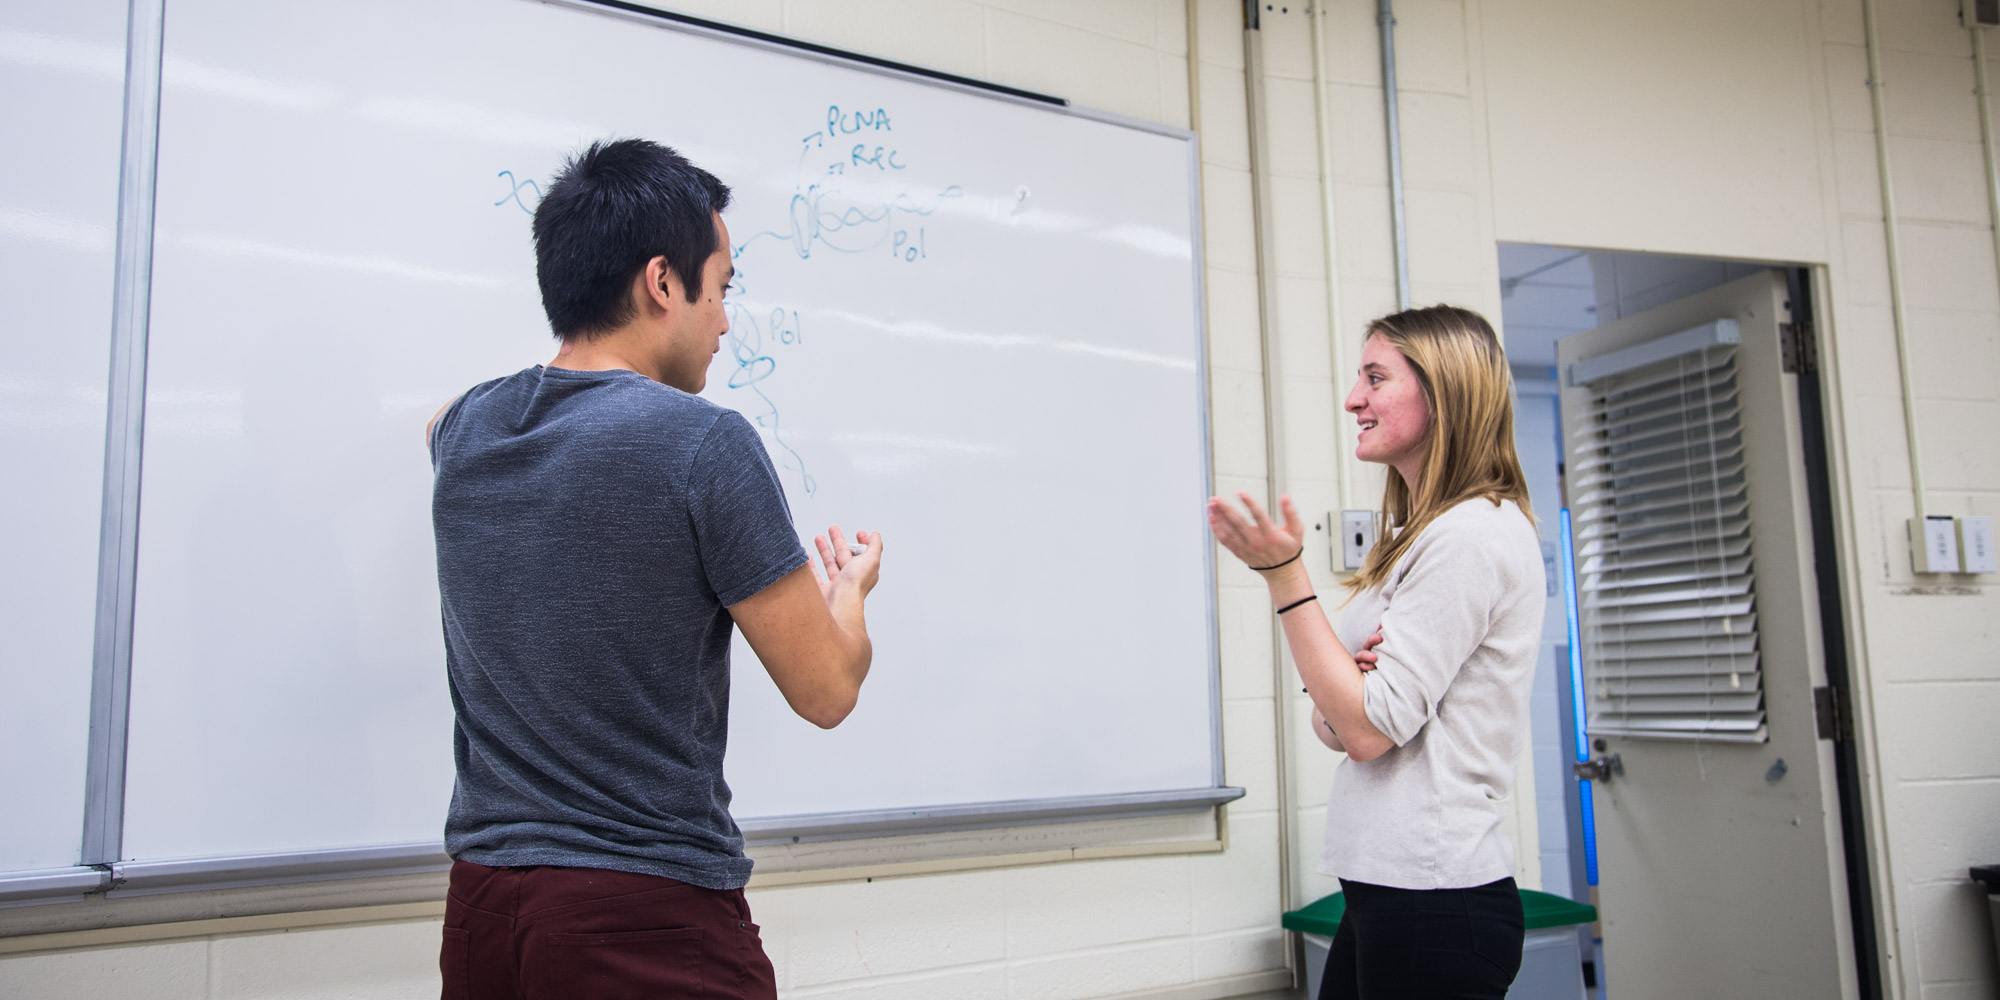 PCNA
RFC
Pol
Pol